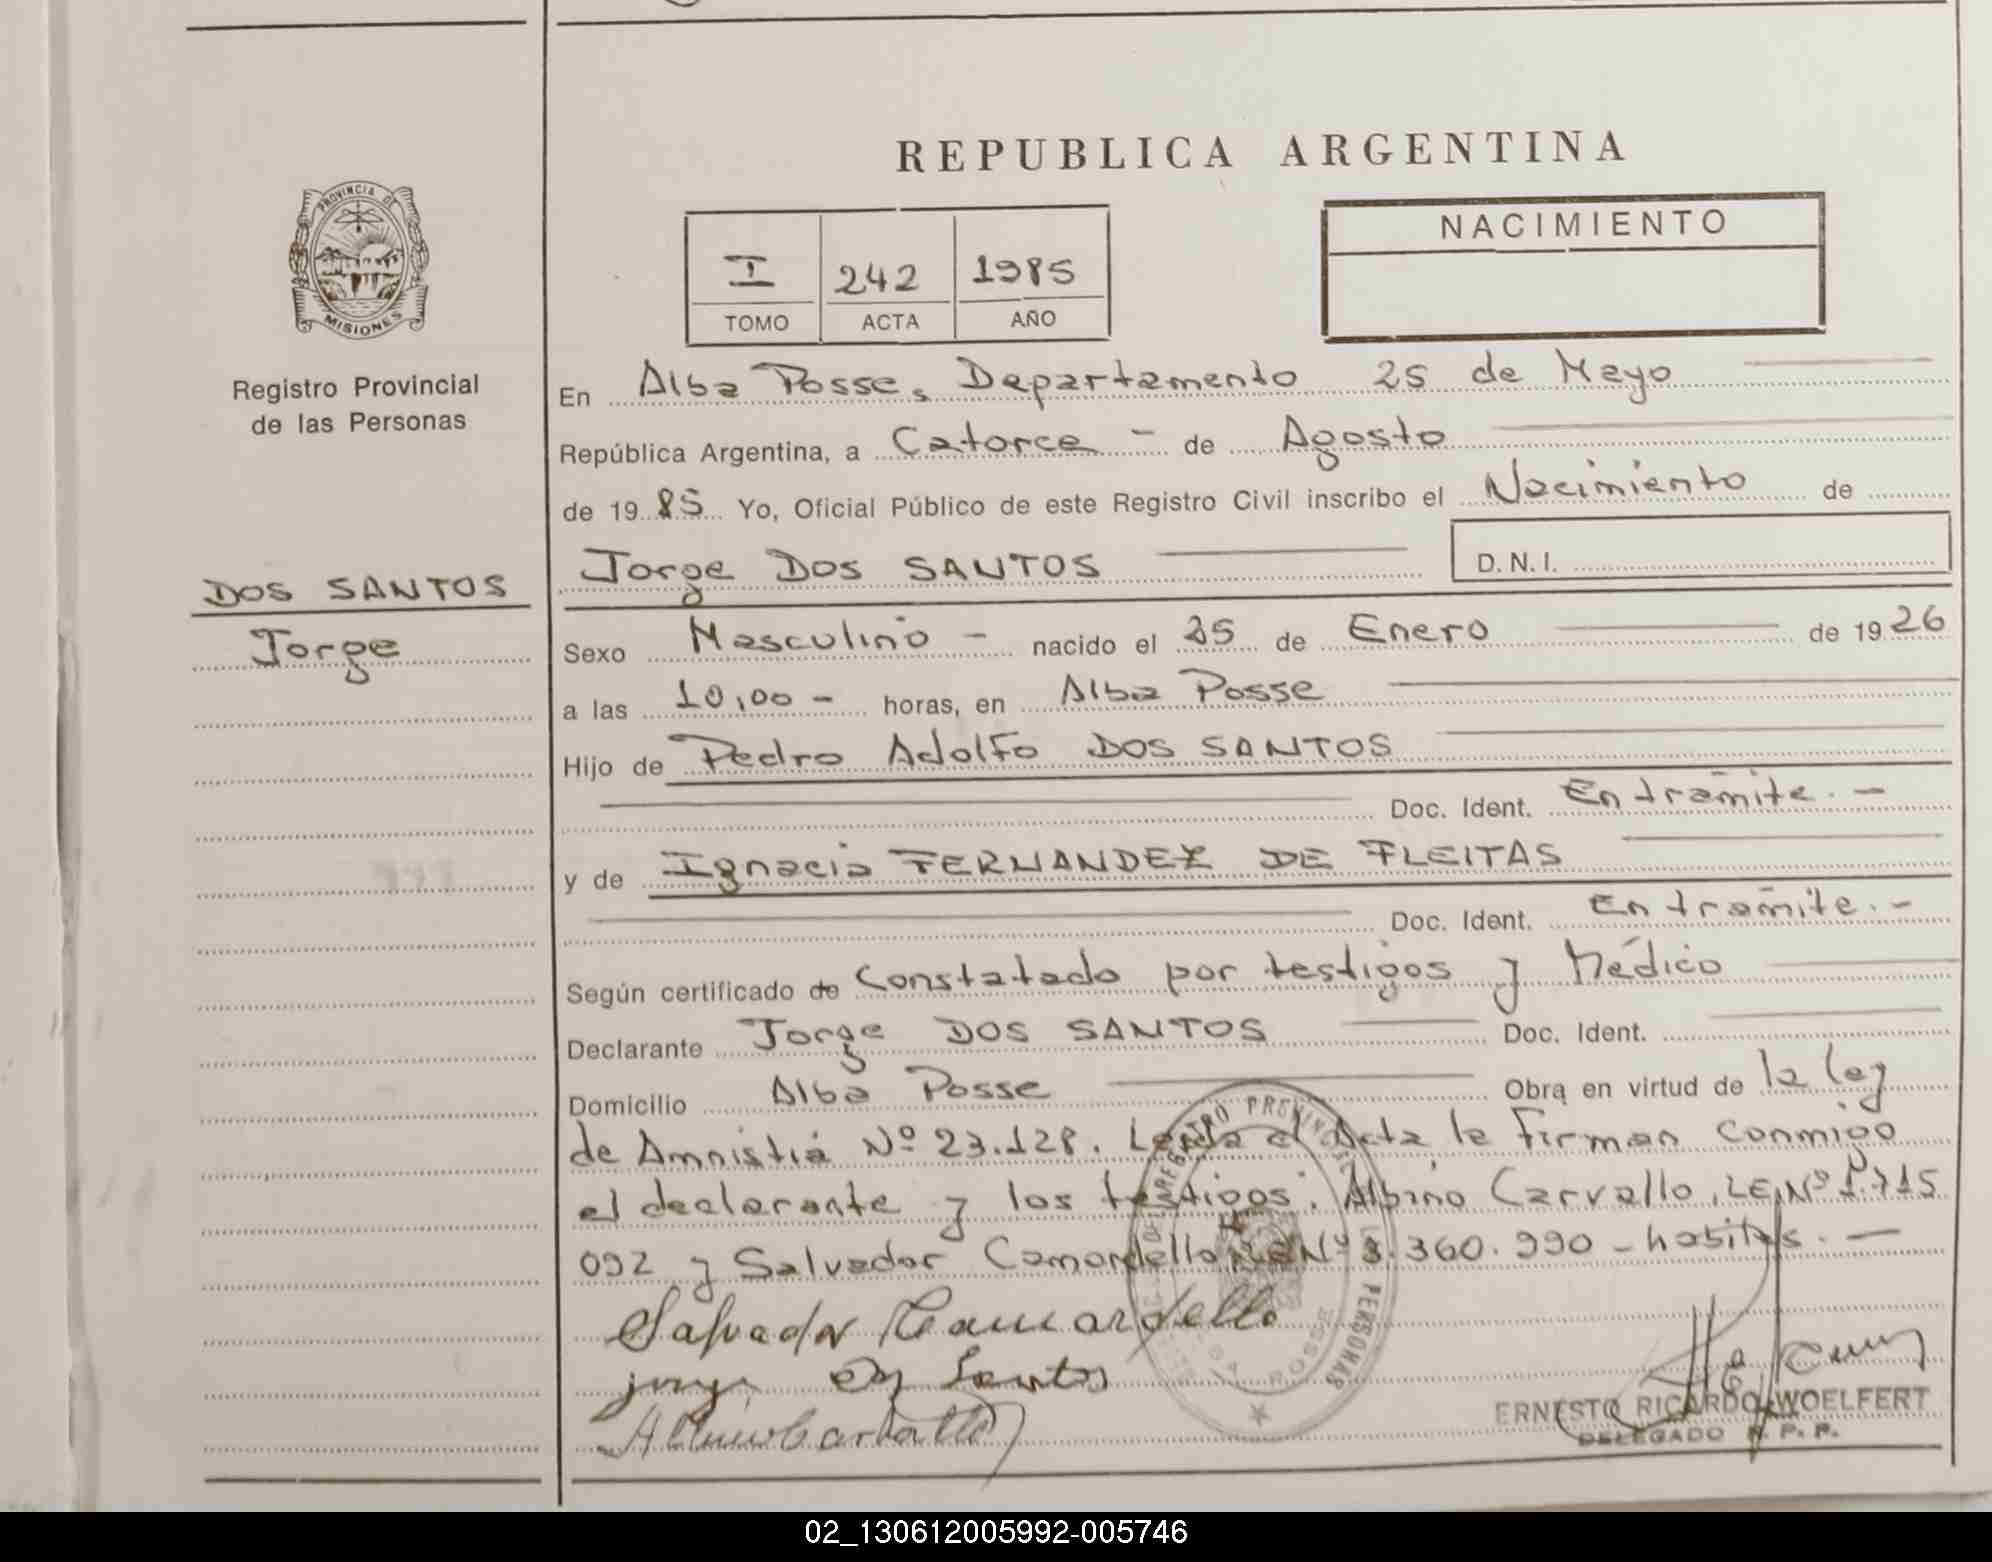 REPUBLICA ARGENTINA
PROVINCIA DE
MISIONES
Registro Provincial
de las Personas
DOS SANTOS
Jorge
I 242 1985
TOMO ACTA AÑO
NACIMIENTO
En Alba Posse, Departamento 25 de Mayo
República Argentina, a Catorce - de Agosto
de 1985 Yo, Oficial Público de este Registro Civil inscribo el Nacimiento de
Jorge DOS SANTOS D.N.I.
Sexo Masculino - nacido el 25 de Enero de 1926
a las 10,00 - horas, en Alba Posse
Hijo de Pedro Adolfo DOS SANTOS
Doc. Ident. En trámite. -
y de Ignacia FERNANDEZ DE FLEITAS
Doc. Ident. En trámite. -
Según certificado de Constatado por testigos y Médico
Declarante Jorge DOS SANTOS Doc. Ident.
Domicilio Alba Posse Obra en virtud de la ley
de Amnistia Nº 23.128. Leida el Acta la firman conmigo
el declarante y los testigos: Albino Carvallo, LE, Nº 1.715
092 y Salvador Camardello, Nº 3.360.990 - habiles. -
Salvador Camardello
jorge Dos Santos
Albino Carballo
REGISTRO PROVINCIAL DE LAS PERSONAS
ALBA POSSE
ERNESTO RICARDO WOELFERT
DELEGADO R. P. P.
02_130612005992-005746